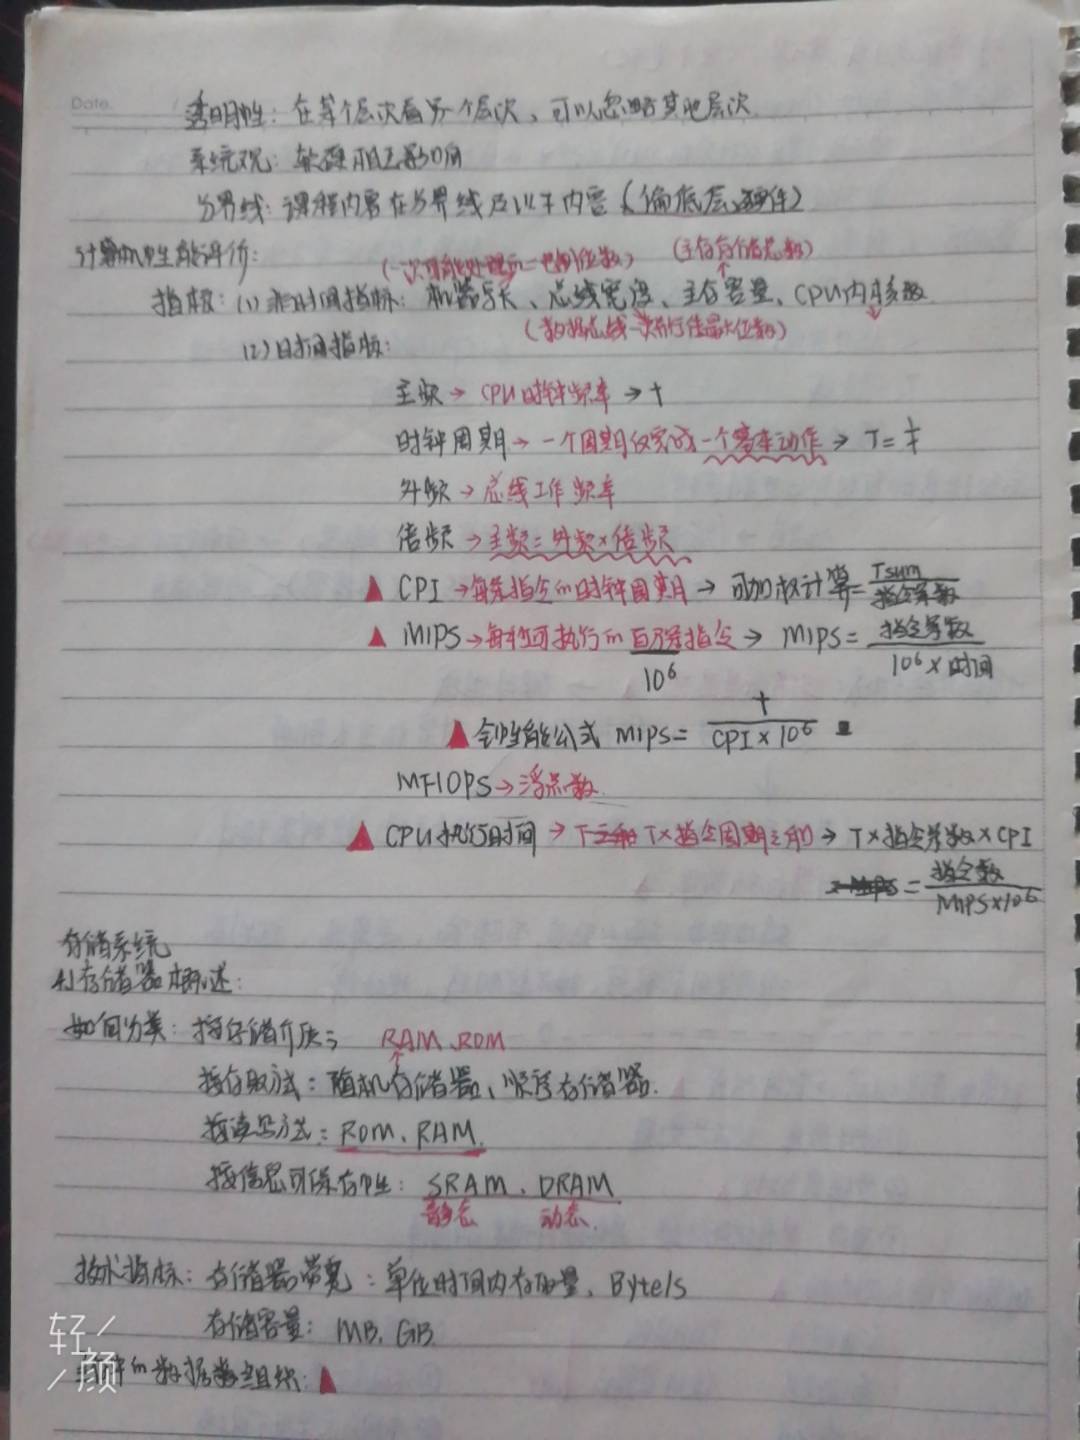 Date.
透明性：在某个层次看另一个层次，可以忽略其他层次
系统观：软硬相互影响
分界线：课程内容在分界线及以下内容（偏底层、硬件）
计算机性能评价：
（一次可能处理的二进制位数） （主存存储总数）
指标：(1) 非时间指标：机器字长、总线宽度、主存容量、CPU内核数
（数据总线一次并行传最大位数）
(2) 时间指标：
主频→CPU时钟频率→f
时钟周期→一个周期仅完成一个基本动作→T=1/f
外频→总线工作频率
倍频→主频=外频×倍频
▲ CPI→每条指令的时钟周期→可加权计算=Tsum/指令条数
▲ MIPS→每秒可执行的百万条指令→MIPS=指令条数/10⁶×时间
10⁶
▲ 全性能公式 MIPS=f/CPI×10⁶
MFlOPS→浮点数.
▲ CPU执行时间→T×指令周期之和→T×指令条数×CPI
=指令数/MIPS×10⁶
存储系统
存储器概述：
如何分类：按存储介质： RAM、ROM
按存取方式：随机存储器、顺序存储器.
按读写方式：ROM、RAM.
按信息可保存性：SRAM、DRAM
静态 动态.
技术指标：存储器带宽：单位时间内存取量，Byte/s
存储容量：MB、GB.
主存的数据组织：▲
轻颜